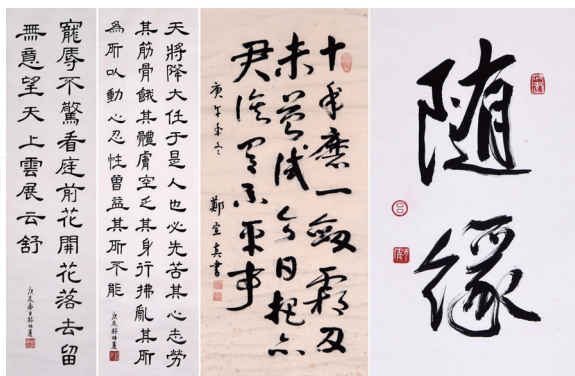 寵辱不驚看庭前花開花落去留
無意望天上雲展云舒
天將降大任于是人也必先苦其心志勞
其筋骨餓其體膚空乏其身行拂亂其所
為所以動心忍性曾益其所不能
十年磨一劍霜刃
未曾試今日把示
君誰為不平事
庚午年冬
随緣